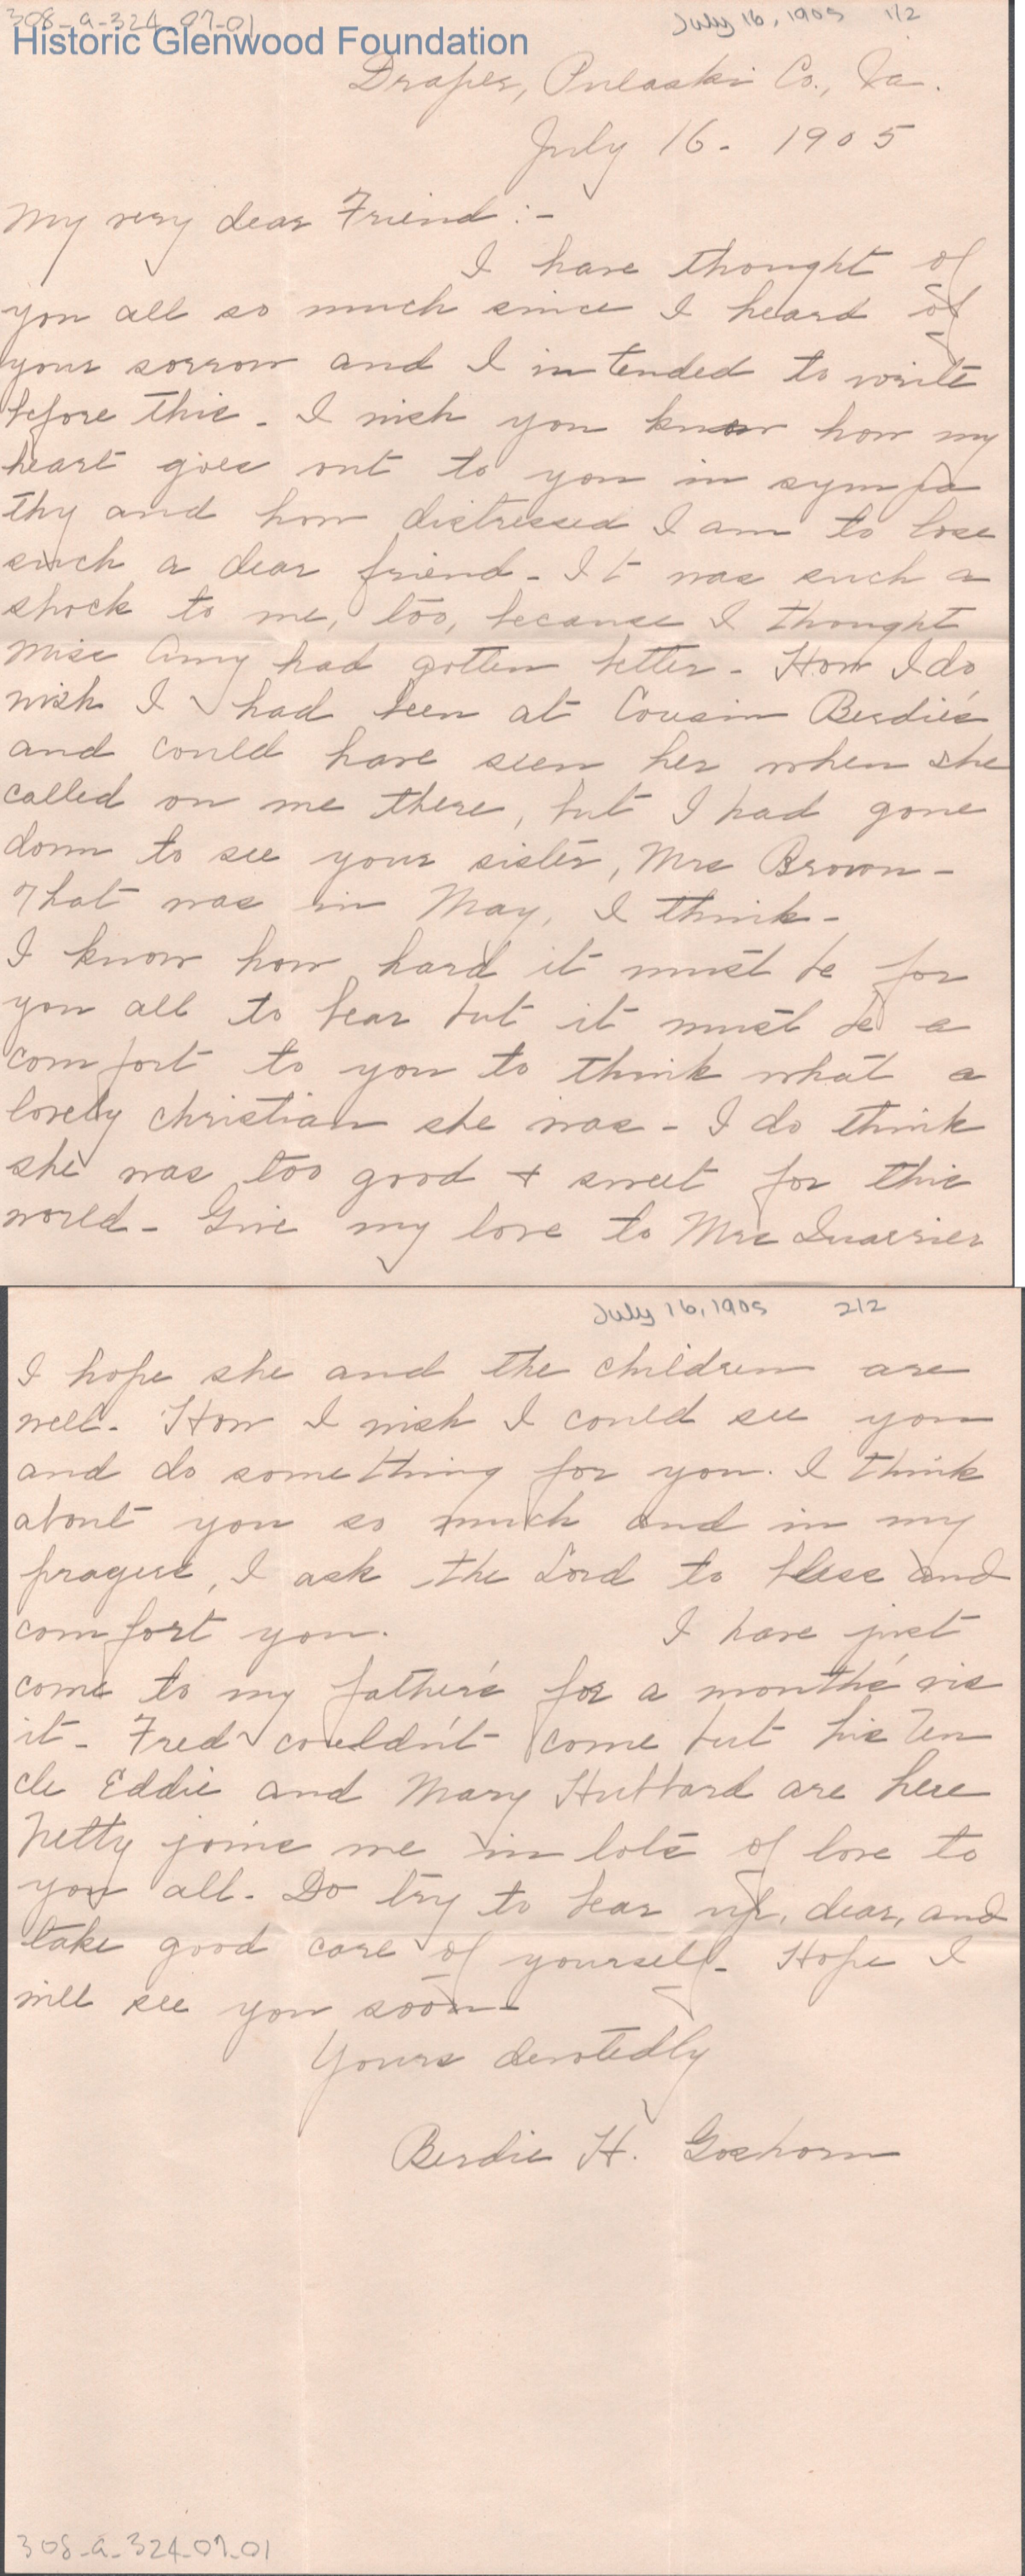 308-a-324-07-01
July 16, 1905 1/2
Historic Glenwood Foundation
Draper, Pulaski Co., Va.
July 16 - 1905
My very dear Friend :-
I have thought of
you all so much since I heard of
your sorrow and I intended to write
before this - I wish you knew how my
heart goes out to you in sympa
thy and how distressed I am to lose
such a dear friend - It was such a
shock to me, too, because I thought
Miss Amy had gotten better - How I do
wish I had been at Cousin Berdie's
and could have seen her when she
called on me there, but I had gone
down to see your sister, Mrs Brown -
That was in May, I think -
I know how hard it must be for
you all to bear but it must be a
comfort to you to think what a
lovely christian she was - I do think
she was too good + sweet for this
world - Give my love to Mrs Quarrier
July 16, 1905 2/2
I hope she and the children are
well - How I wish I could see you
and do something for you. I think
about you so much and in my
prayers, I ask the Lord to bless and
comfort you. I have just
come to my father's for a month's vis
it - Fred couldn't come but his Un
cle Eddie and Mary Hubbard are here
Netty joins me in lots of love to
you all - Do try to bear up, dear, and
take good care of yourself - Hope I
will see you soon -
Yours devotedly
Berdie H. Goshorn
308-a-324-07-01